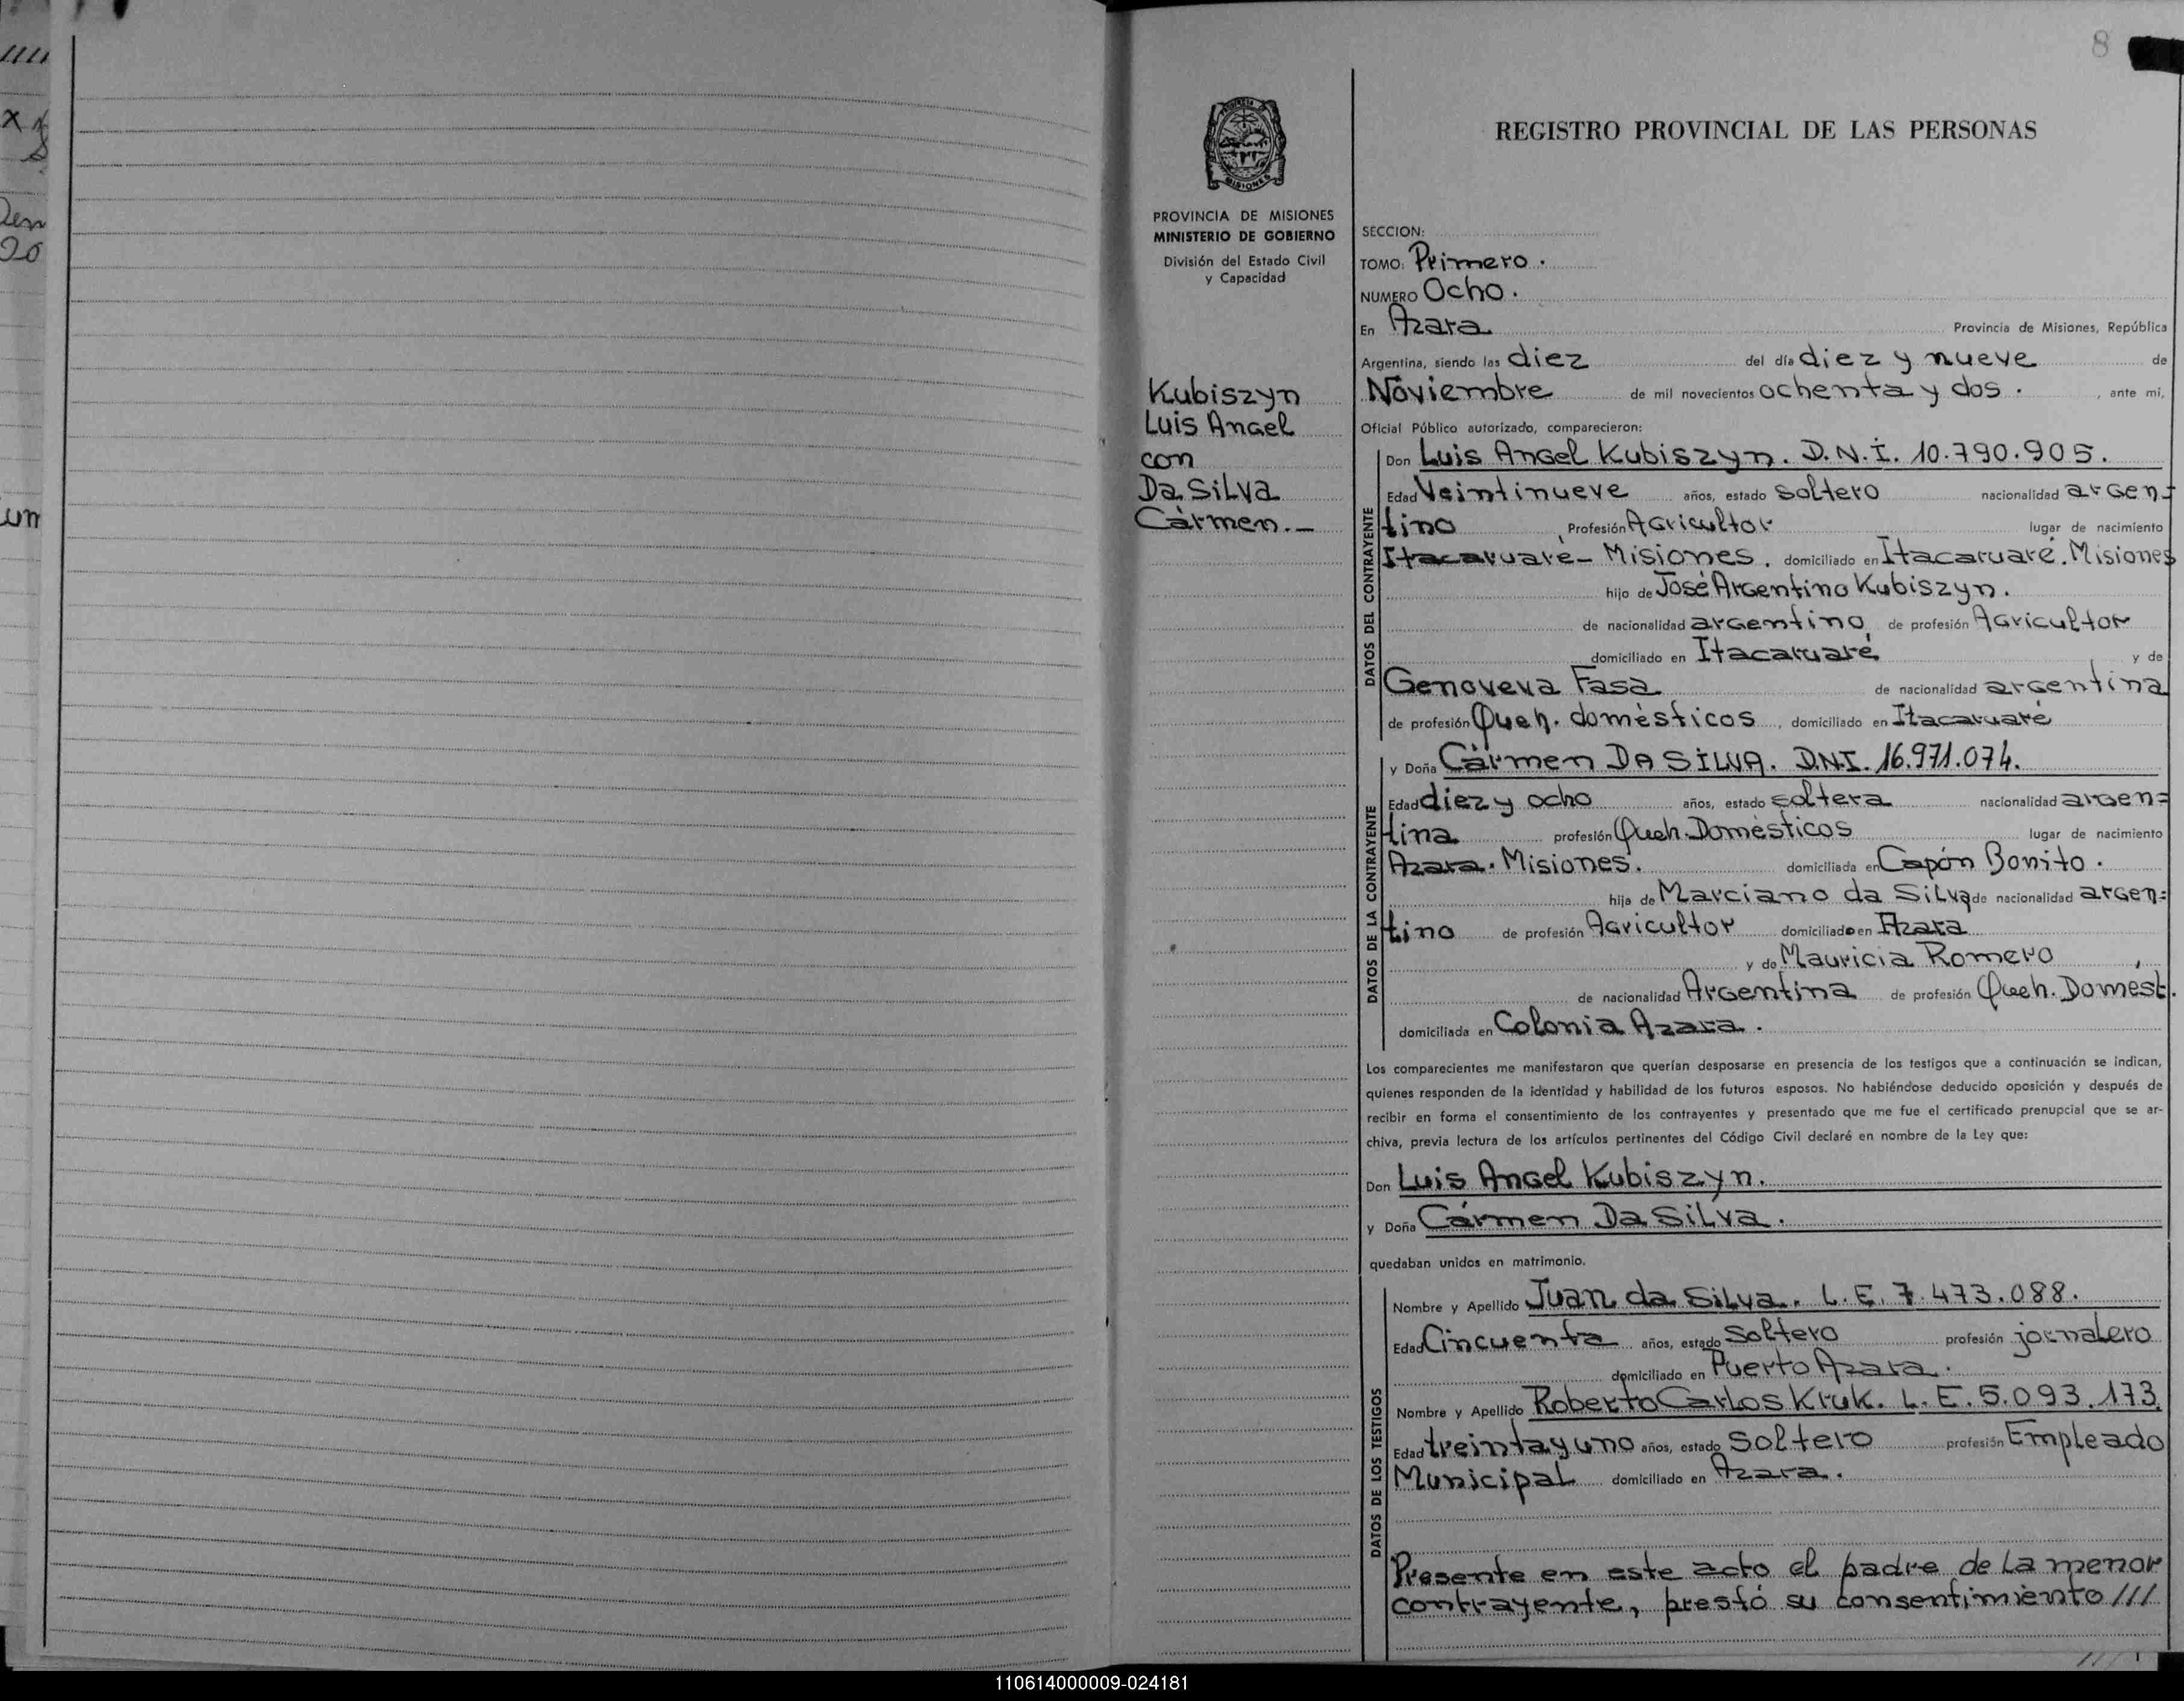 8
REGISTRO PROVINCIAL DE LAS PERSONAS
MISIONES
PROVINCIA DE MISIONES
MINISTERIO DE GOBIERNO
División del Estado Civil
y Capacidad
Kubiszyn
Luis Angel
con
Da Silva
Cármen.-
SECCION:
TOMO: Primero.
NUMERO Ocho.
En Azara Provincia de Misiones, República
Argentina, siendo las diez del día diez y nueve de
Noviembre de mil novecientos ochenta y dos. , ante mi,
Oficial Público autorizado, comparecieron:
DATOS DEL CONTRAYENTE
Don Luis Angel Kubiszyn. D.N.I. 10.790.905.
Edad Veintinueve años, estado soltero nacionalidad argen=
tino , Profesión Agricultor lugar de nacimiento
Itacaruaré- Misiones. domiciliado en Itacaruaré. Misiones
hijo de José Argentino Kubiszyn.
de nacionalidad argentino, de profesión Agricultor
domiciliado en Itacaruaré y de
Genoveva Fasa de nacionalidad argentina
de profesión Queh. domésticos , domiciliado en Itacaruaré
DATOS DE LA CONTRAYENTE
y Doña Cármen DA SILVA. D.N.I. 16.971.074.
Edad diez y ocho años, estado soltera nacionalidad argen=
tina profesión Queh. Domésticos lugar de nacimiento
Azara. Misiones. domiciliada en Capón Bonito.
hija de Marciano da Silva de nacionalidad argen=
tino de profesión Agricultor domiciliado en Azara
y de Mauricia Romero ,
de nacionalidad Argentina de profesión Queh. Domést.
domiciliada en Colonia Azara.
Los comparecientes me manifestaron que querían desposarse en presencia de los testigos que a continuación se indican,
quienes responden de la identidad y habilidad de los futuros esposos. No habiéndose deducido oposición y después de
recibir en forma el consentimiento de los contrayentes y presentado que me fue el certificado prenupcial que se ar-
chiva, previa lectura de los artículos pertinentes del Código Civil declaré en nombre de la Ley que:
Don Luis Angel Kubiszyn.
y Doña Cármen Da Silva.
quedaban unidos en matrimonio.
DATOS DE LOS TESTIGOS
Nombre y Apellido Juan da Silva. L.E. 7.473.088.
Edad Cincuenta años, estado Soltero profesión jornalero
domiciliado en Puerto Azara.
Nombre y Apellido Roberto Carlos Kruk. L.E. 5.093.173.
Edad treinta y uno años, estado Soltero profesión Empleado
Municipal domiciliado en Azara.
Presente en este acto el padre de la menor
contrayente, prestó su consentimiento ///
110614000009-024181